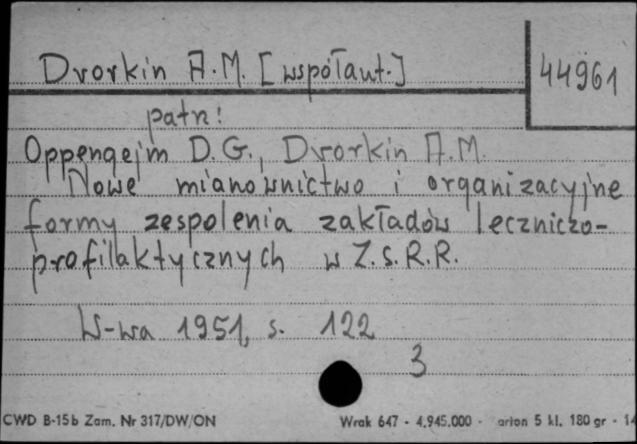 Dvorkin A.M. [współaut.]
44961
patrz:
Oppengejm D.G., Dvorkin A.M.
Nowe mianownictwo i organizacyjne
formy zespolenia zakładów leczniczo-
profilaktycznych w Z.S.R.R.
W-wa 1951, s. 122
3
CWD B-15b Zam. Nr 317/DW/ON
Wrak 647 - 4.945.000 - arton 5 kl. 180 gr - 1